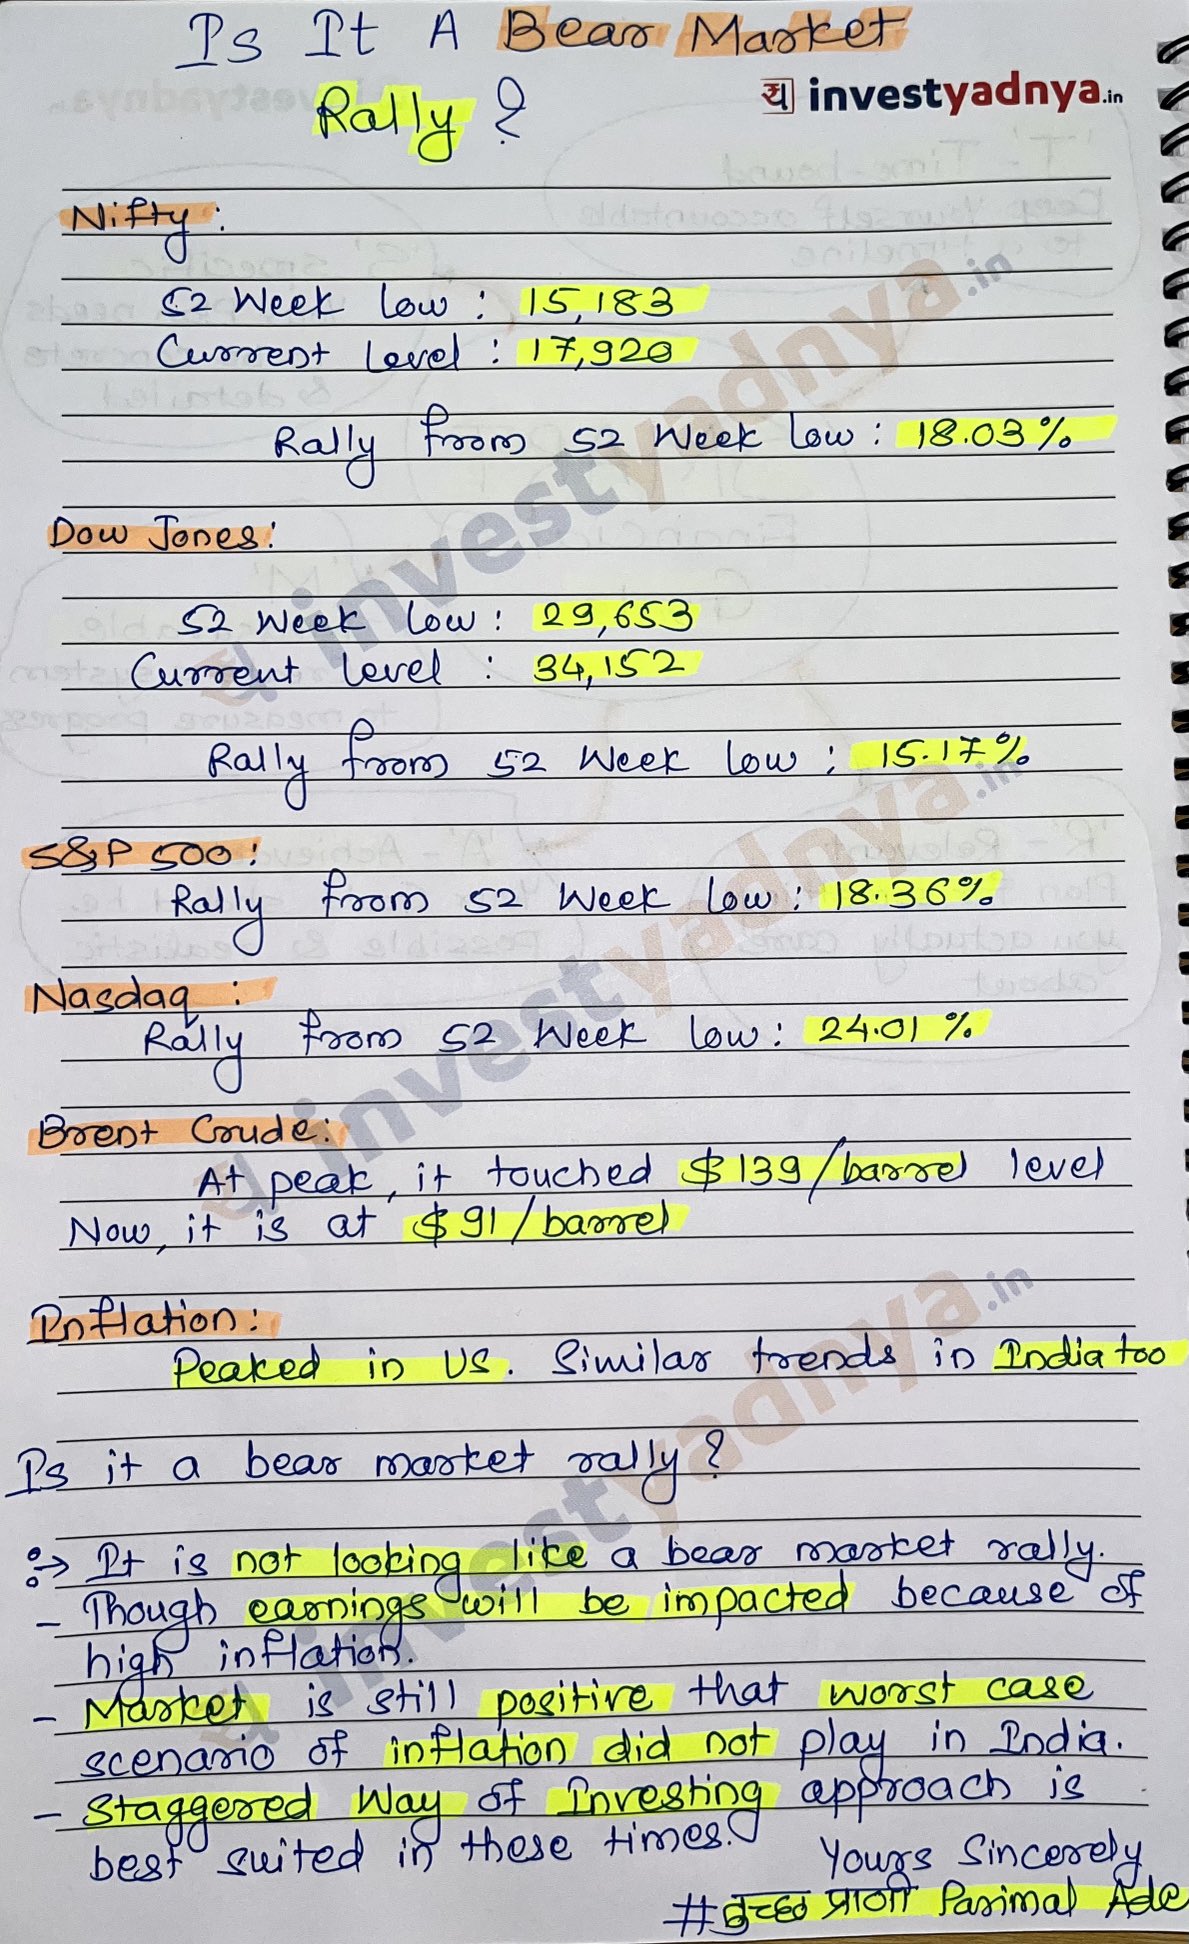 Is It A Bear Market
Rally ?
य investyadnya.in
Nifty :
52 Week low : 15,183
Current Level : 17,920
Rally from 52 Week low : 18.03%
Dow Jones:
52 Week low : 29,653
Current level : 34,152
Rally from 52 Week low : 15.17%
S&P 500:
Rally from 52 Week low : 18.36%
Nasdaq :
Rally from 52 Week low : 24.01%
Brent Crude:
At peak, it touched $139/barrel level
Now, it is at $91/barrel
Inflation:
Peaked in US. Similar trends in India too
Is it a bear market rally?
It is not looking like a bear market rally.
- Though earnings will be impacted because of
high inflation.
- Market is still positive that worst case
scenario of inflation did not play in India.
- Staggered Way of Investing approach is
best suited in these times.
Yours Sincerely
#तुच्छ प्राणी Parimal Ade